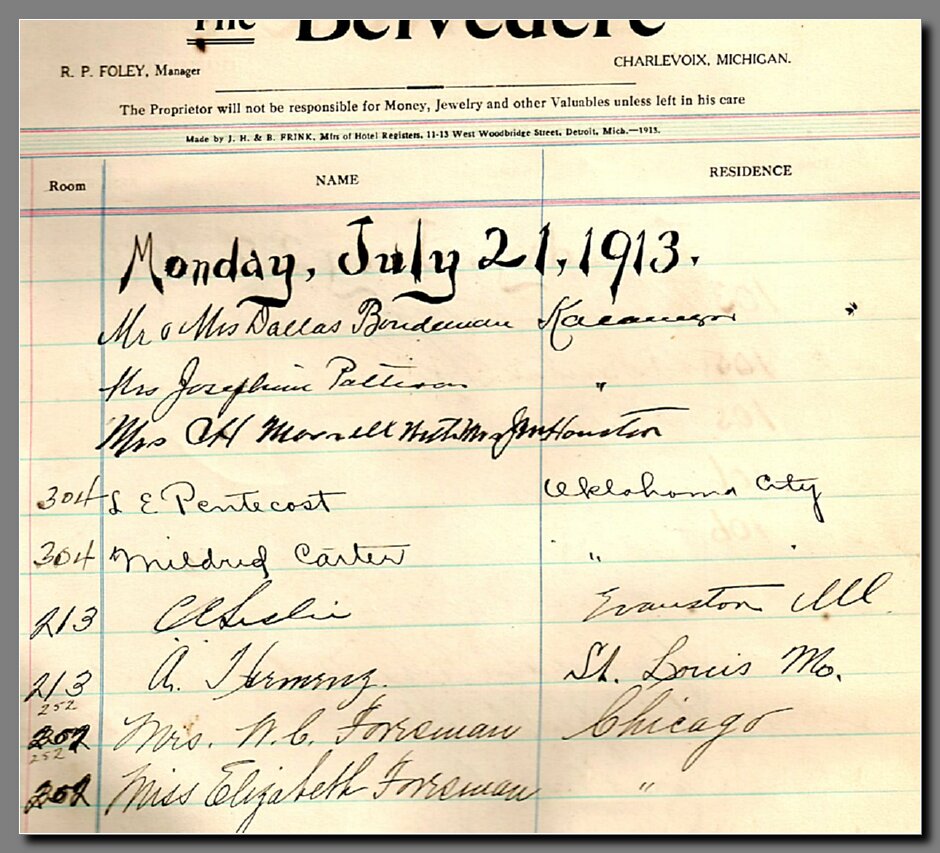 The Belvedere
R. P. FOLEY, Manager
CHARLEVOIX, MICHIGAN.
The Proprietor will not be responsible for Money, Jewelry and other Valuables unless left in his care
Made by J. H. & B. FRINK, Mfrs of Hotel Registers, 11-13 West Woodbridge Street, Detroit, Mich.—1913.
Room NAME RESIDENCE
Monday, July 21, 1913.
Mr & Mrs Dallas Boudeman "
Mrs Josephine Pattison "
Mrs CH Morrill Houston
304 L E Pentecost Oklahoma City
304 Mildred Carter " "
213 Leslie Evanston Ill.
213 A. St. Louis Mo.
252
Mrs. W. C. Foresman Chicago
252
Miss Elizabeth Foresman "